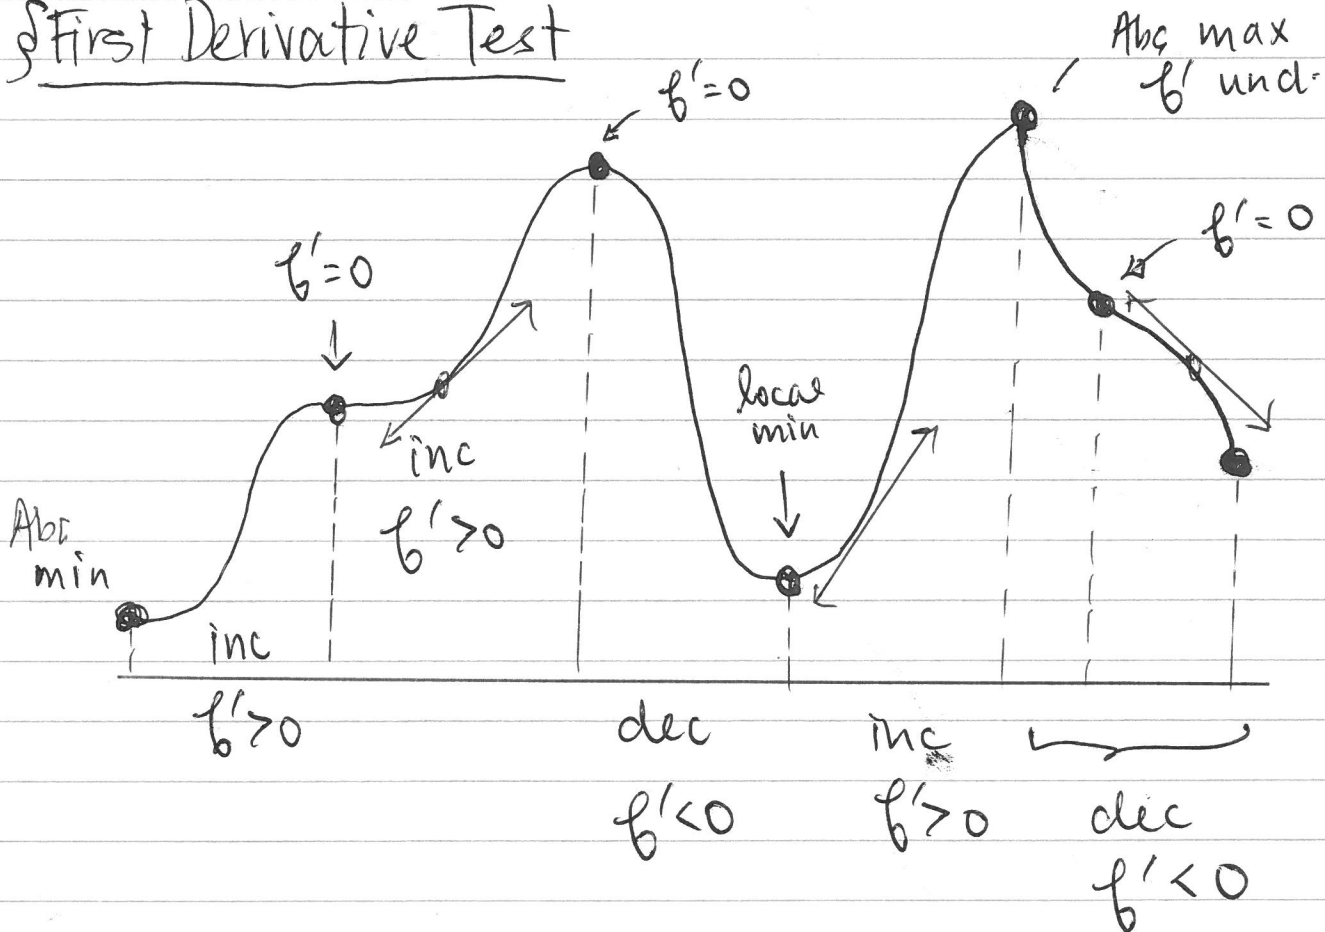 § First Derivative Test
Abs max
f' und.
f'=0
f'=0
f'=0
local
min
inc
f'>0
Abs
min
inc
f'>0
dec
f'<0
inc
f'>0
dec
f'<0